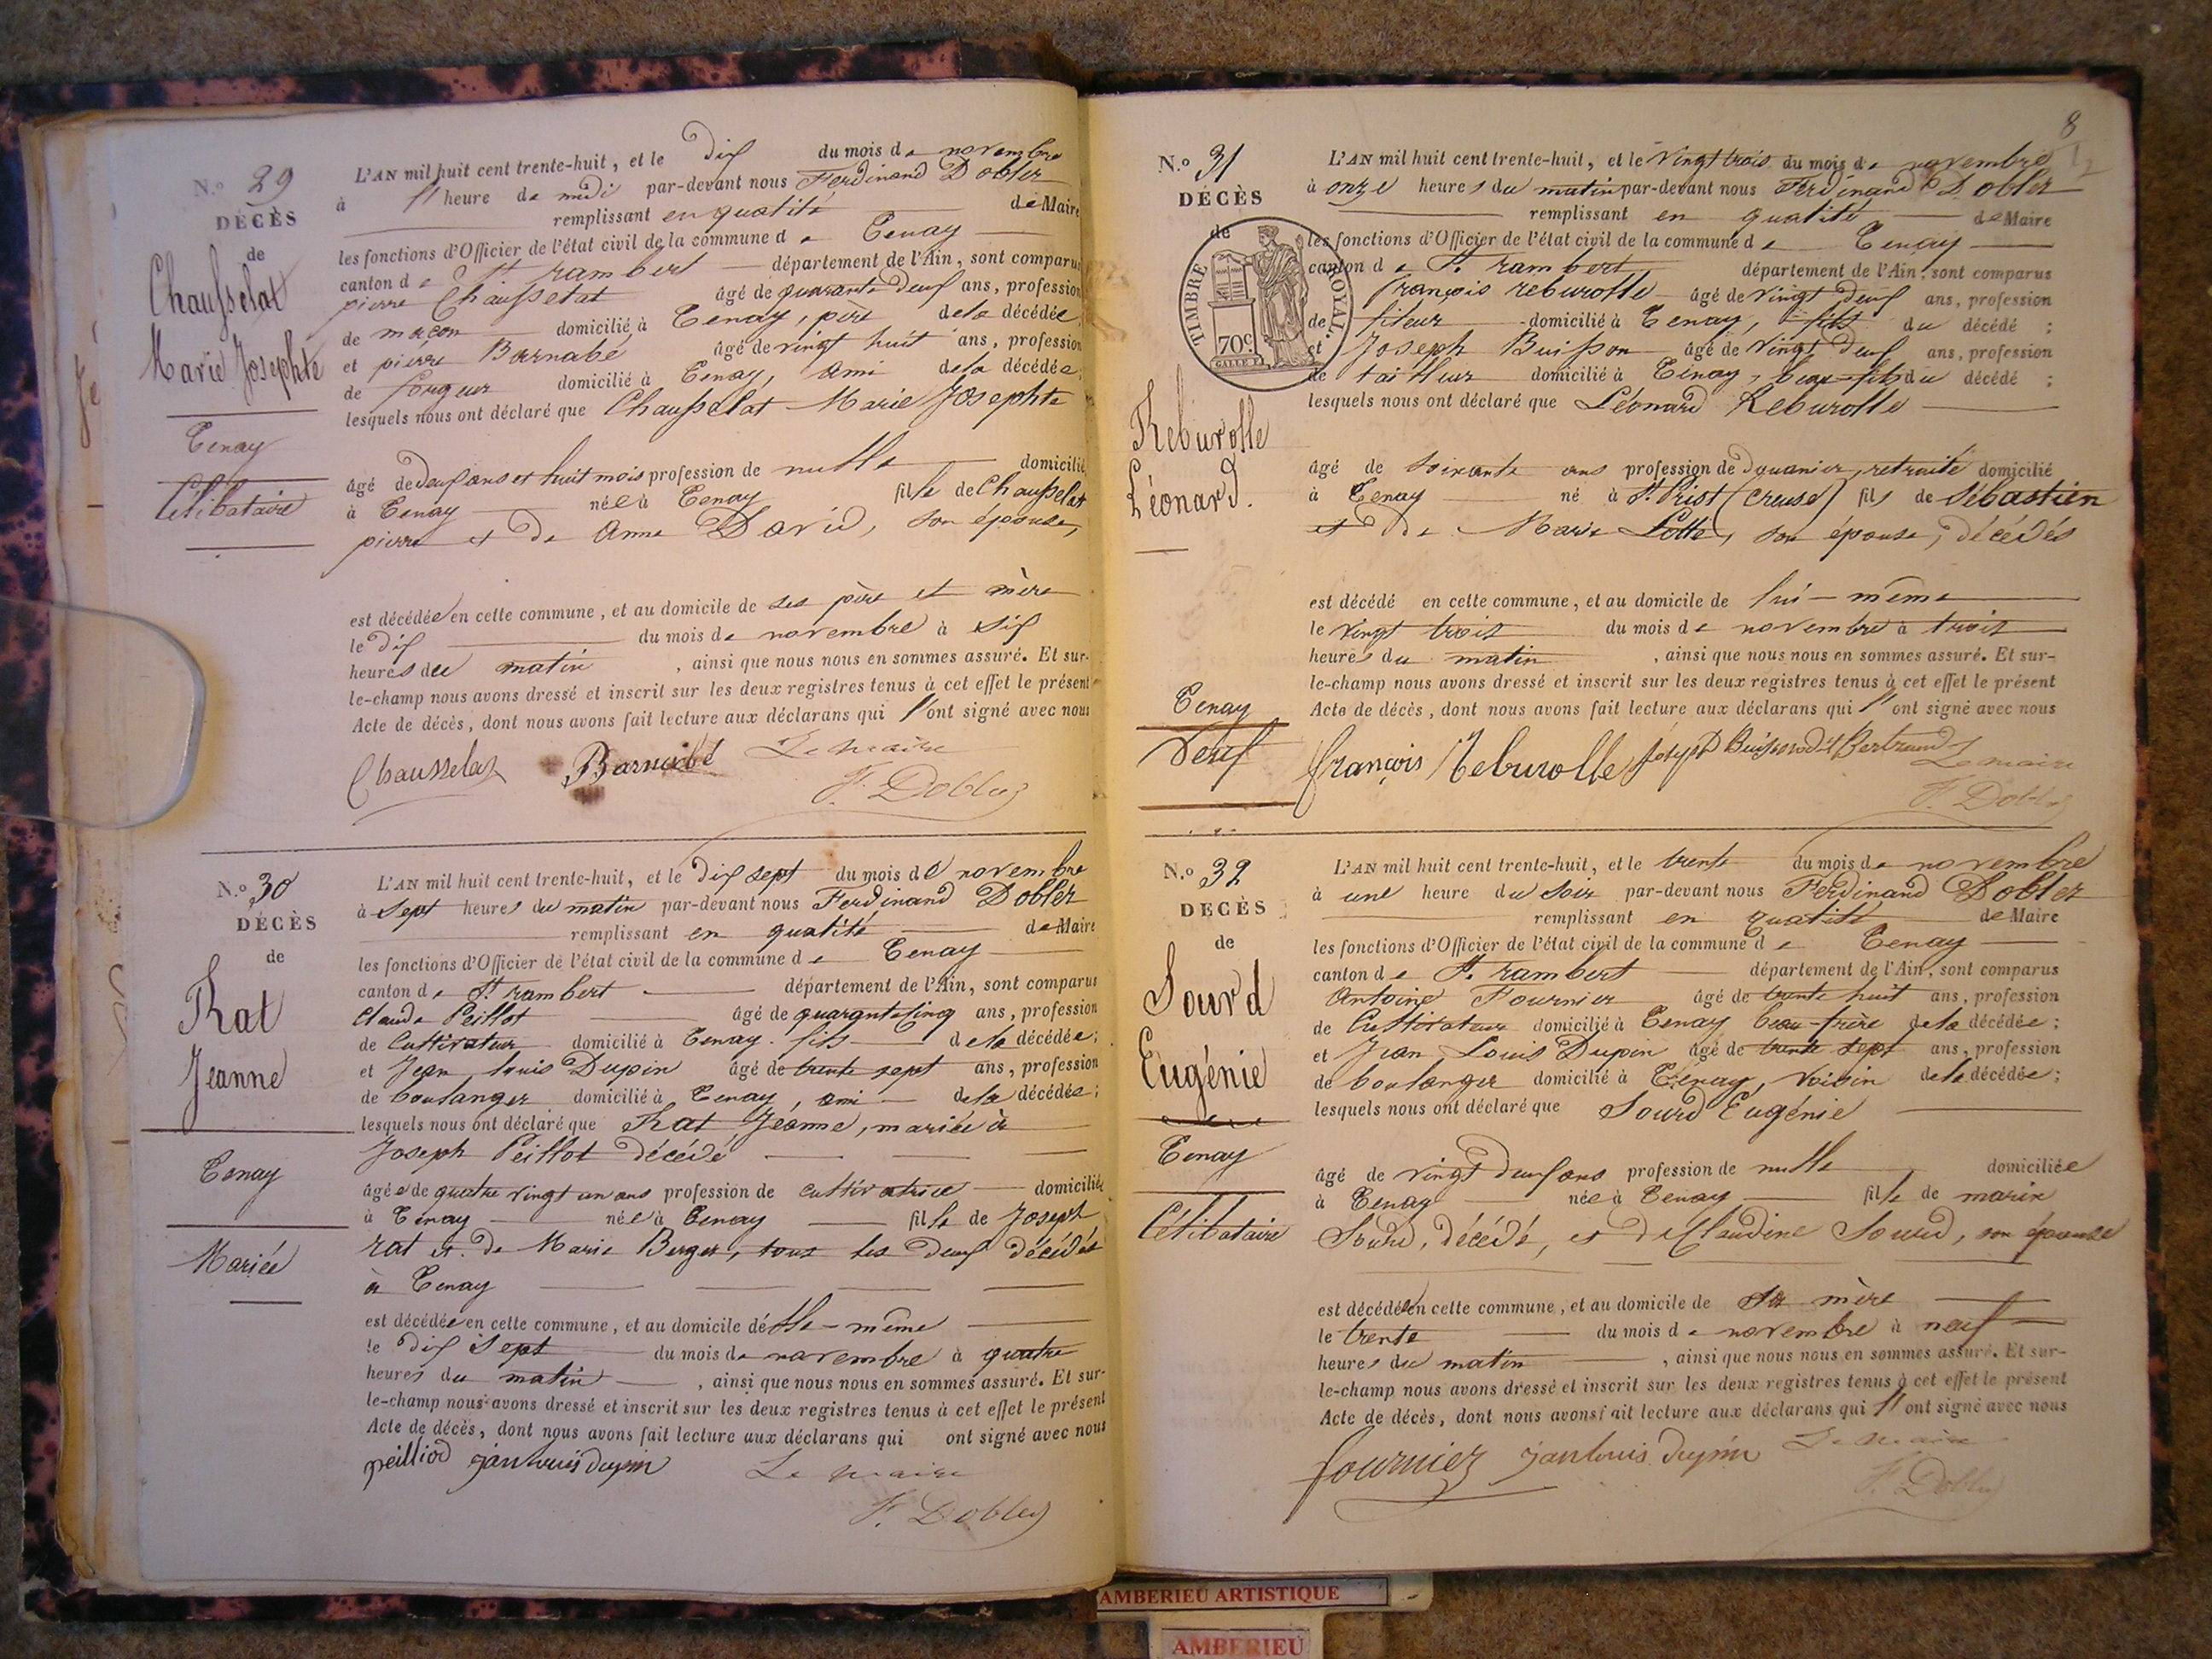 N.o 29
DÉCÈS
de
Chausselat
Marie Josephte
Tenay
Célibataire
L'AN mil huit cent trente-huit, et le dix du mois de novembre
à heure de midi par-devant nous Ferdinand Dobler
remplissant en qualité de Maire
les fonctions d'Officier de l'état civil de la commune de Tenay
canton de St rambert département de l'Ain, sont comparus
pierre Chausselat âgé de quarante deux ans, profession
de maçon domicilié à Tenay, père de la décédée
et pierre Barnabé âgé de vingt huit ans, profession
de domicilié à Tenay, ami de la décédée;
lesquels nous ont déclaré que Chausselat Marie Josephte
âgé de deux ans et huit mois profession de nulle domicilié
à Tenay née à Tenay fille de Chausselat
pierre et de Anne David, son épouse,
est décédée en cette commune, et au domicile de ses père et mère
le dix du mois de novembre à six
heures du matin, ainsi que nous nous en sommes assuré. Et sur-
le-champ nous avons dressé et inscrit sur les deux registres tenus à cet effet le présent
Acte de décès, dont nous avons fait lecture aux déclarans qui l'ont signé avec nous
Chausselat Barnabé Le maire
F. Dobler
N.o 30
DÉCÈS
de
Rat
Jeanne
Tenay
Mariée
L'AN mil huit cent trente-huit, et le dix sept du mois de novembre
à sept heures du matin par-devant nous Ferdinand Dobler
remplissant en qualité de Maire
les fonctions d'Officier de l'état civil de la commune de Tenay
canton de St. rambert département de l'Ain, sont comparus
Claude Peillot âgé de quarante cinq ans, profession
de Cultivateur domicilié à Tenay. fils de la décédée;
et Jean Louis Dupin âgé de trente sept ans, profession
de boulanger domicilié à Tenay, ami de la décédée;
lesquels nous ont déclaré que Rat Jeanne, mariée à
Joseph Peillot décédé
âgée de quatre vingt un ans profession de cultivatrice domiciliée
à Tenay née à Tenay fille de Joseph
rat et de Marie Berger, tous les deux décédés
à Tenay
est décédée en cette commune, et au domicile d'elle-même
le dix sept du mois de novembre à quatre
heures du matin, ainsi que nous nous en sommes assuré. Et sur-
le-champ nous avons dressé et inscrit sur les deux registres tenus à cet effet le présent
Acte de décès, dont nous avons fait lecture aux déclarans qui ont signé avec nous
peilliod janlouis dupin Le maire
F. Dobler
8
N.o 31
DÉCÈS
de
TIMBRE ROYAL.
70c
Reburolle
Léonard.
Tenay
Veuf
L'AN mil huit cent trente-huit, et le vingt trois du mois de novembre
à onze heures du matin par-devant nous Ferdinand Dobler
remplissant en qualité de Maire
les fonctions d'Officier de l'état civil de la commune de Tenay
canton de St. rambert département de l'Ain, sont comparus
françois reburolle âgé de vingt deux ans, profession
de fileur domicilié à Tenay, fils du décédé;
et Joseph Buisson âgé de vingt deux ans, profession
de tailleur domicilié à Tenay, beau-fils du décédé;
lesquels nous ont déclaré que Léonard Reburolle
âgé de soixante ans profession de douanier, retraité domicilié
à Tenay né à St. Priest (creuse) fils de Sébastien
et de Marie Lotte, son épouse, décédés
est décédé en cette commune, et au domicile de lui-même
le vingt trois du mois de novembre à trois
heures du matin, ainsi que nous nous en sommes assuré. Et sur-
le-champ nous avons dressé et inscrit sur les deux registres tenus à cet effet le présent
Acte de décès, dont nous avons fait lecture aux déclarans qui l'ont signé avec nous
françois Reburolle Joseph Buisson dit Bertrand Le maire
F. Dobler
N.o 32
DECÈS
de
Sourd
Eugénie
Tenay
Célibataire
L'AN mil huit cent trente-huit, et le trente du mois de novembre
à une heure du soir par-devant nous Ferdinand Dobler
remplissant en qualité de Maire
les fonctions d'Officier de l'état civil de la commune de Tenay
canton de St. rambert département de l'Ain, sont comparus
Antoine Fournier âgé de trente huit ans, profession
de Cultivateur domicilié à Tenay beau-frère de la décédée;
et Jean Louis Dupin âgé de trente sept ans, profession
de boulanger domicilié à Tenay, voisin de la décédée;
lesquels nous ont déclaré que Sourd Eugénie
âgé de vingt deux ans profession de nulle domiciliée
à Tenay née à Tenay fille de marin
Sourd, décédé, et de Claudine Sourd, son épouse
est décédée en cette commune, et au domicile de sa mère
le trente du mois de novembre à neuf
heures du matin, ainsi que nous nous en sommes assuré. Et sur-
le-champ nous avons dressé et inscrit sur les deux registres tenus à cet effet le présent
Acte de décès, dont nous avons fait lecture aux déclarans qui l'ont signé avec nous
fournier janlouis dupin Le maire
F. Dobler
AMBERIEU ARTISTIQUE
AMBERIEU